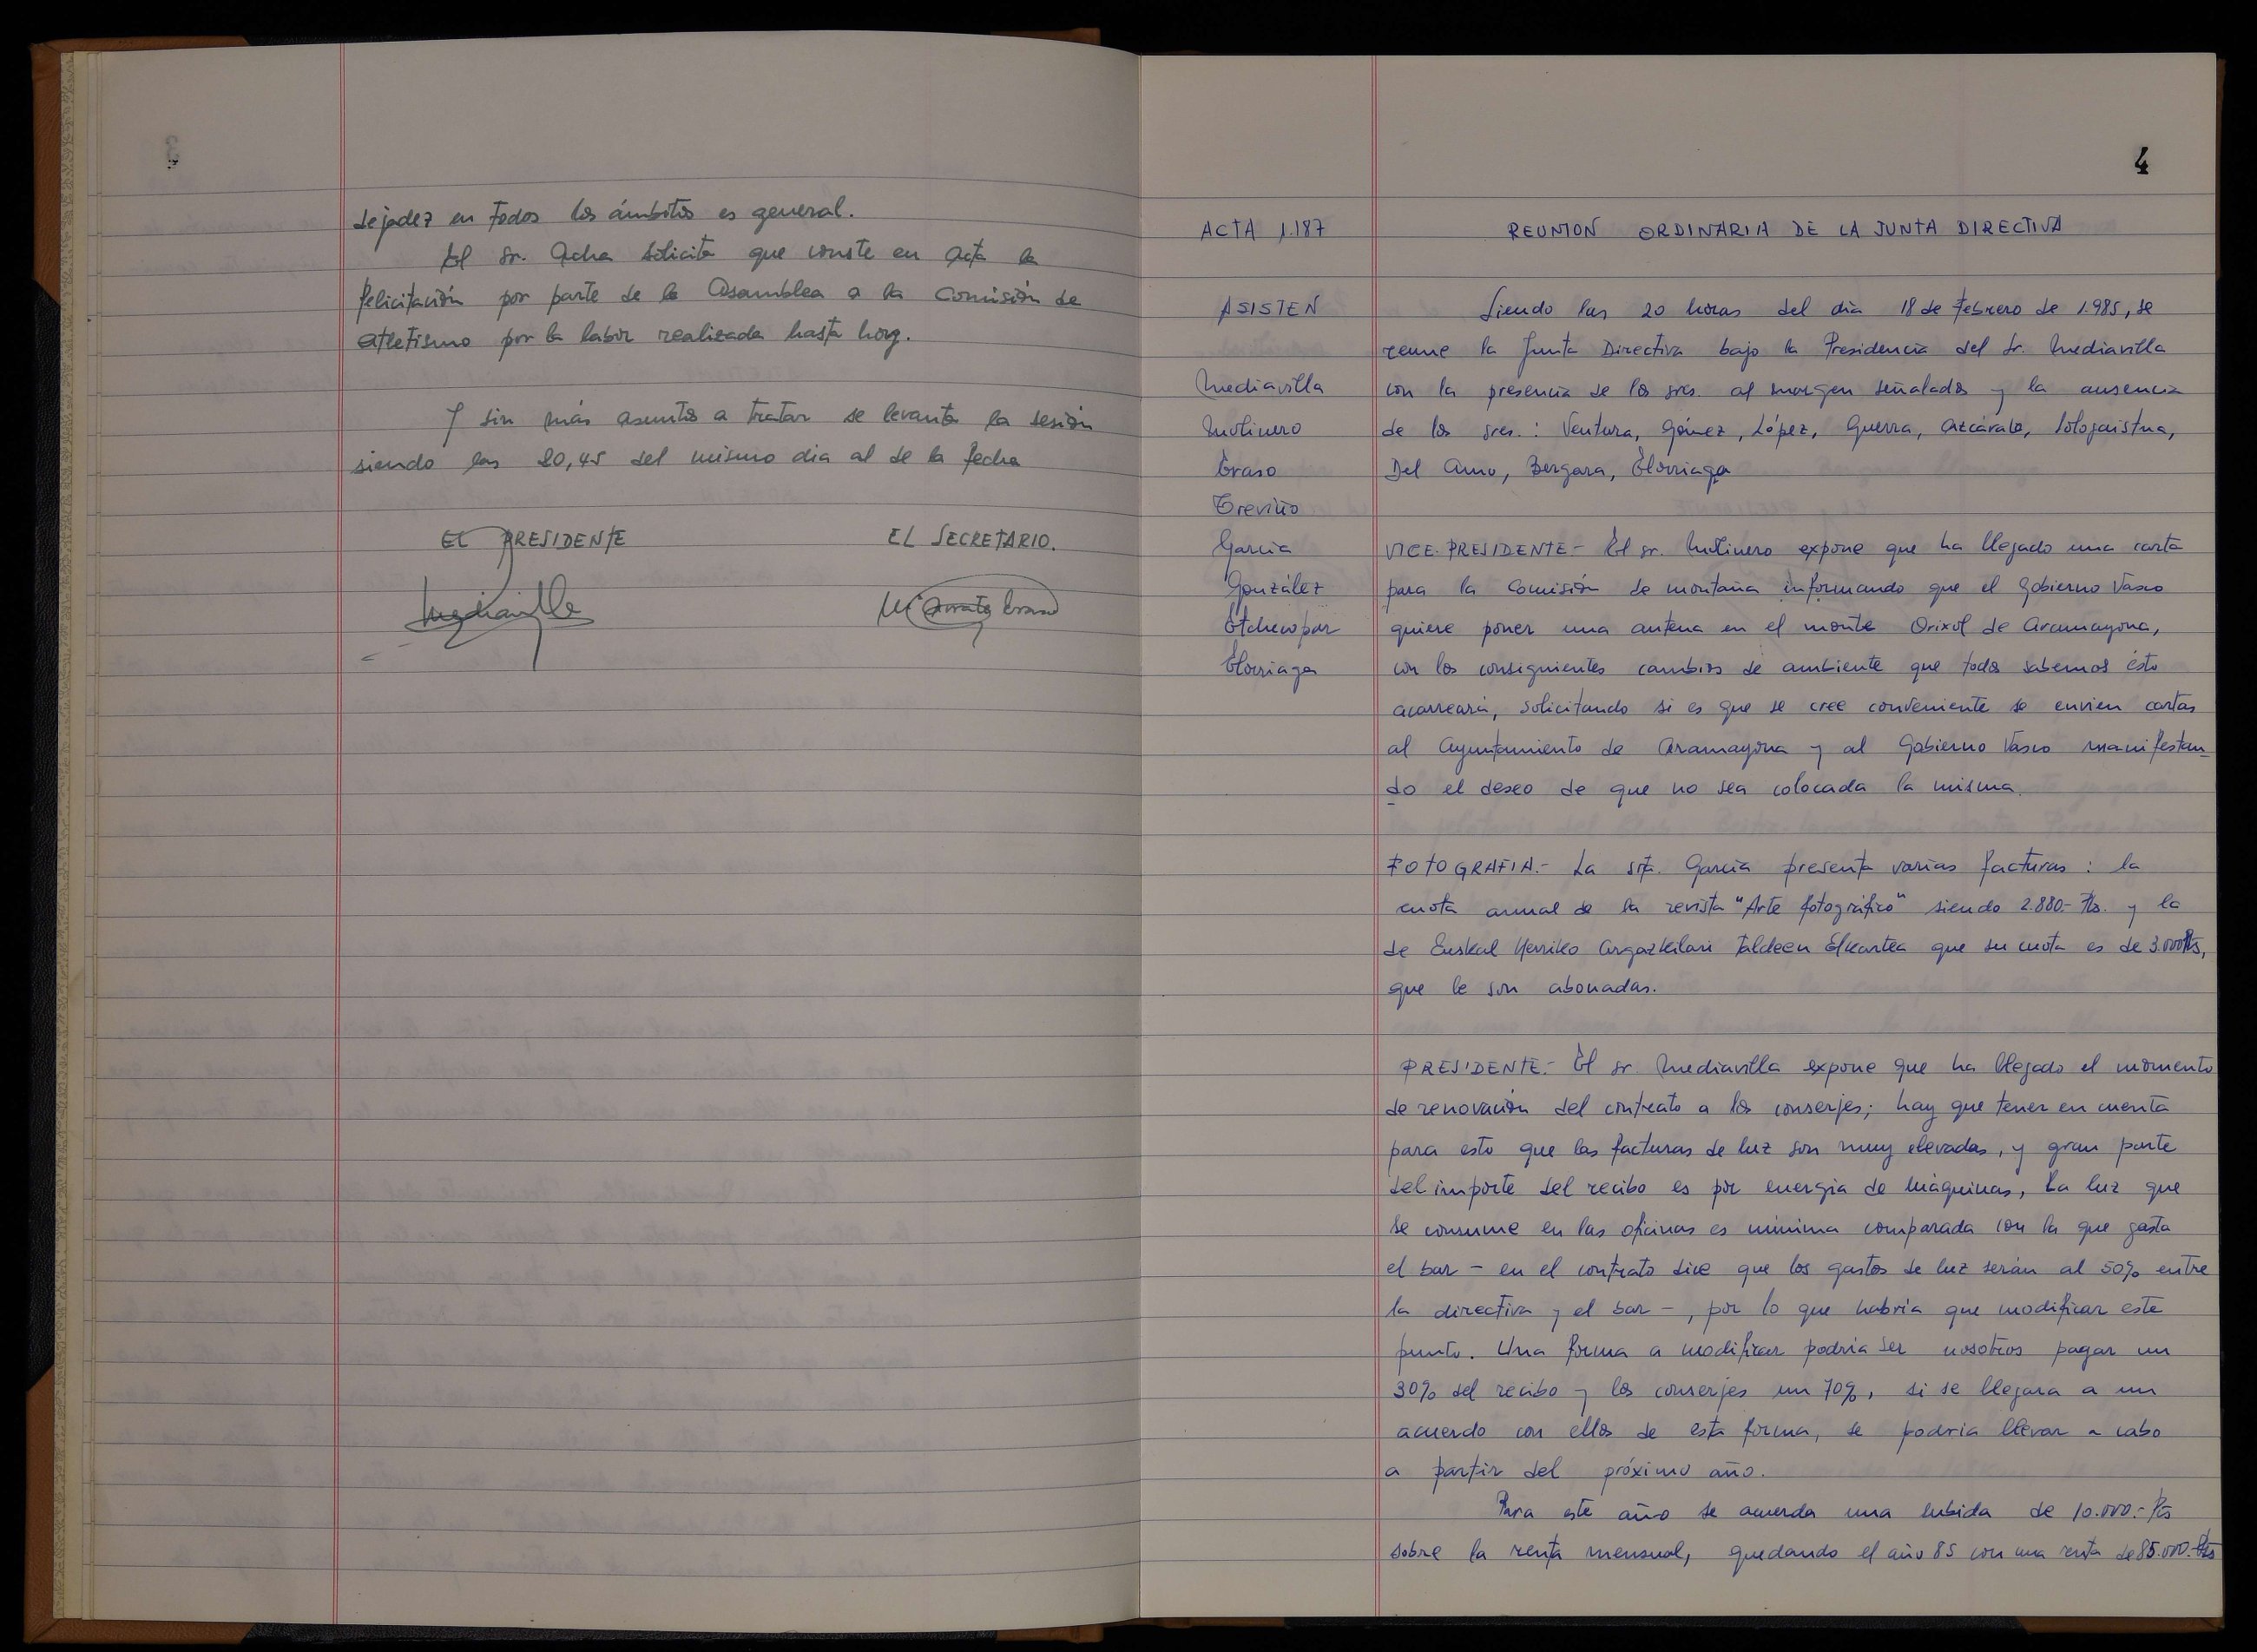 dejadez en todos los ámbitos es general.
El sr. Acha solicita que conste en Acta la
felicitación por parte de la Asamblea a la Comisión de
Atletismo por la labor realizada hasta hoy.
Y sin más asuntos a tratar se levanta la sesión
siendo las 20,45 del mismo dia al de la fecha
EL PRESIDENTE
EL SECRETARIO.
Mediavilla
4
ACTA 1.187
REUNION ORDINARIA DE LA JUNTA DIRECTIVA
ASISTEN
Mediavilla
Molinero
Eraso
Treviño
García
González
Etchecopar
Elorriaga
Siendo las 20 horas del dia 18 de Febrero de 1.985, se
reune la Junta Directiva bajo la Presidencia del Sr. Mediavilla
con la presencia de los sres. al margen señalados y la ausencia
de los sres.: Ventura, Gómez, López, Guerra, Azcárate, Ologaistua,
Del Amo, Bergara, Elorriaga
VICE-PRESIDENTE.- El sr. Molinero expone que ha llegado una carta
para la Comisión de montaña informando que el Gobierno Vasco
quiere poner una antena en el monte Orixol de Aramayona,
con los consiguientes cambios de ambiente que todos sabemos ésto
acarreará, solicitando si es que se cree conveniente se envien cartas
al Ayuntamiento de Aramayona y al Gobierno Vasco manifestan_
do el deseo de que no sea colocada la misma.
FOTOGRAFIA.- La srta. García presenta varias facturas: la
cuota anual de la revista "Arte fotográfico" siendo 2.880.- Pts. y la
de Euskal Herriko Argazkilari Taldeen Elkartea que su cuota es de 3.000 Pts,
que le son abonadas.
PRESIDENTE.- El sr. Mediavilla expone que ha llegado el momento
de renovación del contrato a los conserjes; hay que tener en cuenta
para esto que las facturas de luz son muy elevadas, y gran parte
del importe del recibo es por energia de máquinas, La luz que
se consume en las oficinas es mínima comparada con la que gasta
el bar - en el contrato dice que los gastos de luz serán al 50% entre
la directiva y el bar -, por lo que habría que modificar este
punto. Una forma a modificar podría ser nosotros pagar un
30% del recibo y los conserjes un 70%, si se llegara a un
acuerdo con ellos de esta forma, se podría llevar a cabo
a partir del próximo año.
Para este año se acuerda una subida de 10.000.- Pts
sobre la renta mensual, quedando el año 85 con una renta de 85.000.- Pts